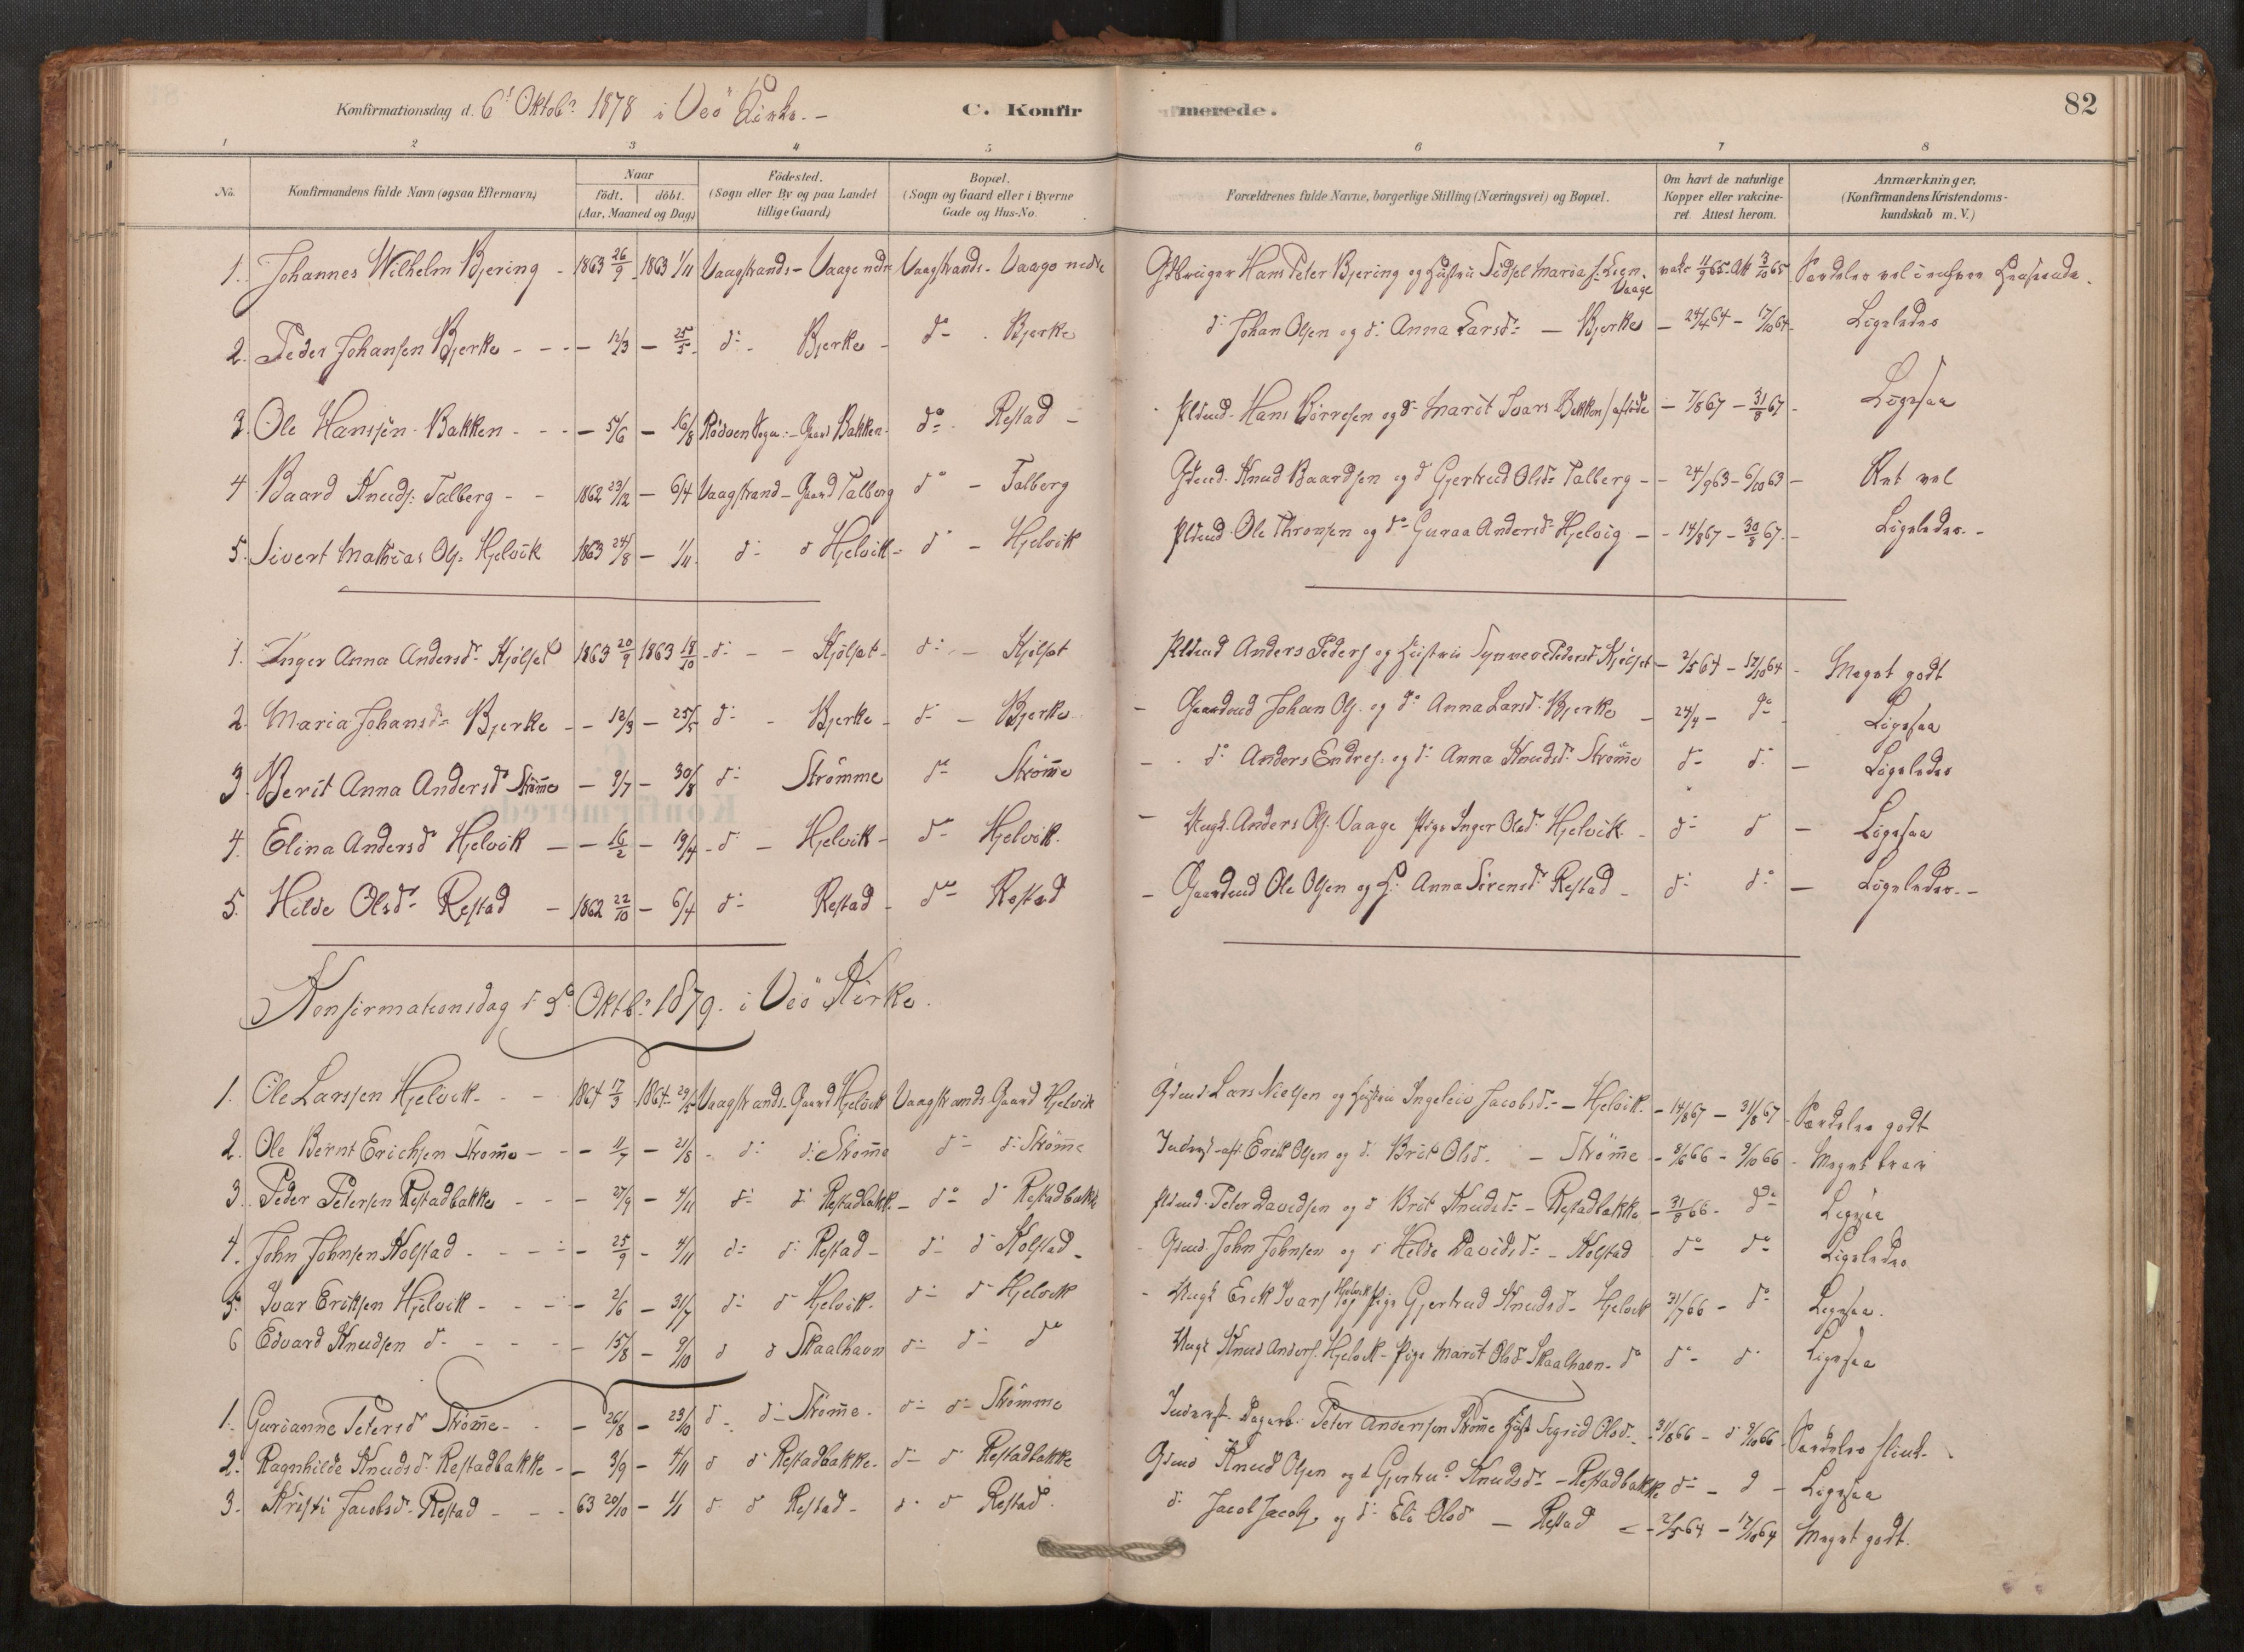 Konfirmationsdag d. 6te Oktobr 1878 i Veö Kirke. –
C. Konfirmerede.
82
1 2 3 4 5 6 7 8
No. Konfirmandens fulde Navn (ogsaa Efternavn) Naar födt. döbt. (Aar, Maaned og Dag) Födested. (Sogn eller By og paa Landet tillige Gaard) Bopæl. (Sogn og Gaard eller i Byerne Gade og Hus-No. Forældrenes fulde Navne, borgerlige Stilling (Næringsvei) og Bopæl. Om havt de naturlige Kopper eller vakcineret. Attest herom. Anmærkninger. (Konfirmandens Kristendomskundskab m. V.)
1. Johannes Wilhelm Bjering - 1863 26/9 - 1863 1/11 Vaagstrands - Vaage nedre Vaagstrands - Vaage nedre Gdbruger Hans Peter Bjering og Hustru Sidsel Maria Vaage vakc 11/9 65. Att 3/10 65
2. Peder Johansen Bjerke - - - 12/3 - 25/5 - do - Bjerke - do - Bjerke do Johan Olsen og do Anna Larsdr - Bjerke - 24/4 64 - 17/10 64 - Ligeledes
3. Ole Hanssen Bakken - - - 5/6 - 16/8 Rödven Sogn - Gaard Bakken do - Restad - Pldmd. Hans og do Marit Ivars Bakken - 7/8 67 - 31/8 67 - Ligesaa
4 Baard Knuds: Talberg - - 1862 23/12 - 6/4 Vaagstrand - Gaard Talberg do - Talberg Gdmd. Knud Baardsen og d Gjertrud Olsdr Talberg - - 24/9 63 - 6/10 63 - Ret vel
5. Sivert Mathias Ols: Hjelvik 1863 24/8 - 1/11 do d Hjelvik - do - Hjelvik Pldmd. Ole Thronsen og do Guraa Andersdr Hjelvig - - 14/8 67 - 30/8 67. - Ligeledes. -
1. Inger Anna Andersdr Kjölset 1863 20/9 1863 18/10 - do - - Kjölset - do - Kjölset Pldmd Anders Peders og Hustru Synneve Pedersd Kjölset - 2/5 64 - 17/10 64 - Meget godt
2. Maria Johansdr Bjerke - - 12/3 - 25/5 do - Bjerke - do - Bjerke - Gaardmd Johan Ols. og do Anna Larsd Bjerke - 24/4 - do Ligesaa
3. Berit Anna Andersd Strömme - 9/7 - 30/8 do Strömme do Strömme - do Anders Endres. og do Anna Knudsd Strömme do do - Ligeledes
4. Elina Andersd Hjelvik - - 16/2 - 19/4 - d - Hjelvik - do Hjelvik. - Ungk. Anders Ols. Vaage Pige Inger Olsd Hjelvik - do d - Ligesaa
5. Hilde Olsdr Restad - 1862 22/10 - 6/4 do Restad - do Restad - Gaardmd Ole Olsen og H: Anna Sirensd Restad - do do - Ligeledes. -
Konfirmationsdag d 5te Oktbr 1879. i Veö Kirke.
1. Ole Larssen Hjelvik - - 1864 17/3 1864 29/5 Vaagstrands - Gaard Hjelvik Vaagstrands - Gaard Hjelvik Gdmd Lars Nielsen og Hustru Ingeleiv Jacobsdr - Hjelvik. - 14/8 67 - 31/8 67 - Særdeles godt
2. Ole Bernt Erichsen Strömme - - - 11/7 - 21/8 - do do Strömme do do Strömme Erik Olsen og do Brit Olsd. - Strömme - 8/6 66 - 9/10 66 - Meget brav
3. Peder Petersen Restadbakke - - - 27/9 - 4/11 do do Restadbakk - do do Restadbakke Pldmd. Peter Davidsen og d Brit Knudsdr - Restadbakke - 31/8 66 - do Ligesaa
4. John Johnsen Kolstad - - - - 25/9 - 4/11 do do Restad - do do Kolstad - Gdmd. John Johnsen og d Helde Davidsdr - Kolstad do do Ligeledes
5. Ivar Eriksen Hjelvik - - - - 2/6 - 31/7 do d Hjelvik. do d Hjelvik - Ungk Erik Ivars Hjelvik og Pige Gjertrud Knudsd - Hjelvik 31/7 66 - do Ligesaa.
6 Edvard Knudsen do - - - - 15/8 - 9/10 d d Skaalhavn do do do Ungk Knud Anders. Hjelvik - Pige Marit Olsd Skaalhavn - do do - d Ligesaa
1. Gurianne Petersd Strömme - - - 26/8 - 23/10 d - do Strömme. do do Strömme Inderst. Dagarb. Peter Andersen Strömme Hust Sigrid Olsd. - 31/8 66 - d 9/10 66 - Særdeles flink.
2. Ragnhilde Knudsd Restadbakke - - 3/9 - 4/11 d d Restadbakke. do d Restadbakke Gdmd Knud Olsen og d Gjertrud Knudsdr - Restadbakke do - d - Ligesaa
3. Kristi Jacobsd Restad - - - 63 20/10 - 1/1 d d Restad - do d Restad. do Jacob Jacobs. og do Eli Olsd - Restad - 2/5 64 - 17/10 64 Meget godt.